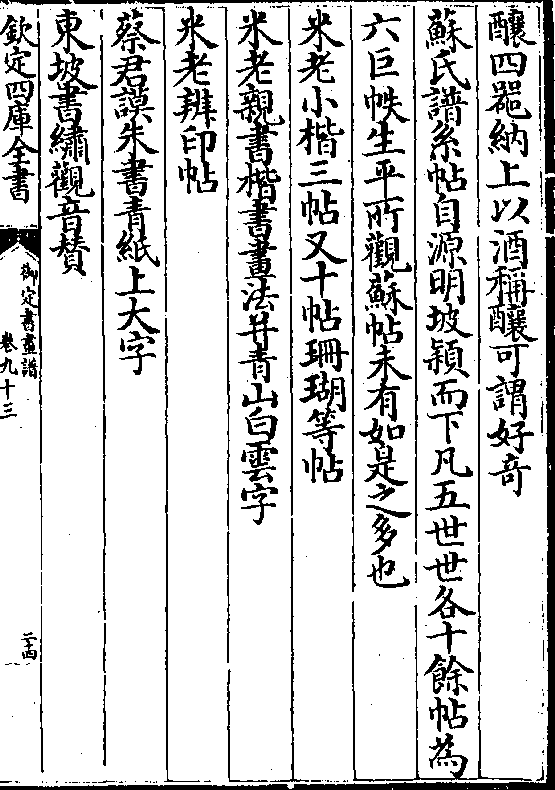 釀四噐納上以酒稱釀可謂好竒
蘇氏譜系帖自源明坡潁而下凡五世世各十餘帖為
六巨帙生平所觀蘇帖未有如是之多也
米老小楷三帖又十帖珊瑚等帖
米老親書楷書畫法并青山白雲字
米老辨印帖
蔡君謨朱書青紙上大字
東坡書繡觀音賛
欽定四庫全書
御定書畫譜
卷九十三
二十四